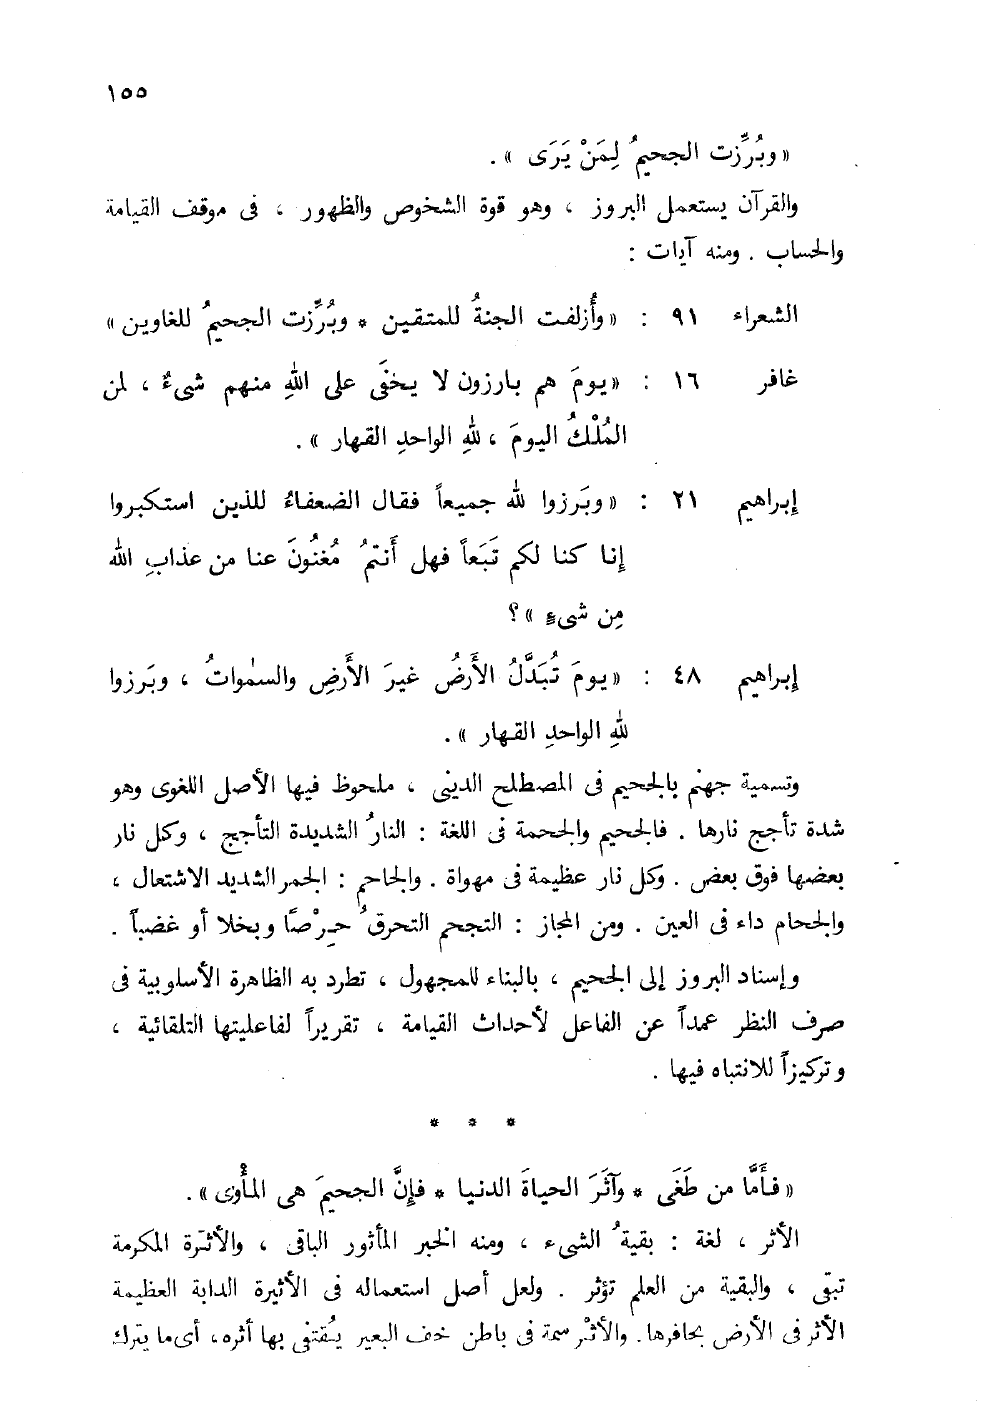 ١٥٥
« وبُرِّزت الجحيمُ لِمَنْ يَرَى » .
والقرآن يستعمل البروز ، وهو قوة الشخوص والظهور ، فى موقف القيامة
والحساب . ومنه آيات :
الشعراء ٩١ : « وأُزلفت الجنةُ للمتقين * وبُرِّزت الجحيمُ للغاوين »
غافر ١٦ : « يومَ هم بارزون لا يخفَى على اللهِ منهم شىءٌ ، لمن
المُلْكُ اليومَ ، للهِ الواحدِ القهار » .
إبراهيم ٢١ : « وبَرزوا لله جميعاً فقال الضعفاءُ للذين استكبروا
إنا كنا لكم تَبَعاً فهل أنتمُ مُغنُونَ عنا من عذابِ الله
مِن شىءٍ » ؟
إبراهيم ٤٨ : « يومَ تُبَدَّلُ الأَرضُ غيرَ الأَرضِ والسمٰواتُ ، وبَرزوا
للهِ الواحدِ القهار » .
وتسمية جهنم بالجحيم فى المصطلح الدينى ، ملحوظ فيها الأصل اللغوى وهو
شدة تأجج نارها . فالجحيم والجحمة فى اللغة : النارُ الشديدة التأجج ، وكل نار
بعضها فوق بعض . وكل نار عظيمة فى مهواة . والجاحم : الجمر الشديد الاشتعال ،
والجحام داء فى العين . ومن المجاز : التجحم التحرقُ حِرْصًا وبخلا أو غضباً .
وإسناد البروز إلى الجحيم ، بالبناء للمجهول ، تطرد به الظاهرة الأسلوبية فى
صرف النظر عمداً عن الفاعل لأحداث القيامة ، تقريراً لفاعليتها التلقائية ،
وتركيزاً للانتباه فيها .
* * *
« فأَمَّا من طَغَى * وآثَرَ الحياةَ الدنيا * فإنَّ الجحيمَ هى المأْوَى » .
الأثر ، لغة : بقيةُ الشىء ، ومنه الخبر المأثور الباقى ، والأثرة المكرمة
تبقى ، والبقية من العلم تؤثر . ولعل أصل استعماله فى الأثيرة الدابة العظيمة
الأثر فى الأرض بحافرها. والأثْر سمة فى باطن خف البعير يُقتفى بها أثره، أى ما يترك